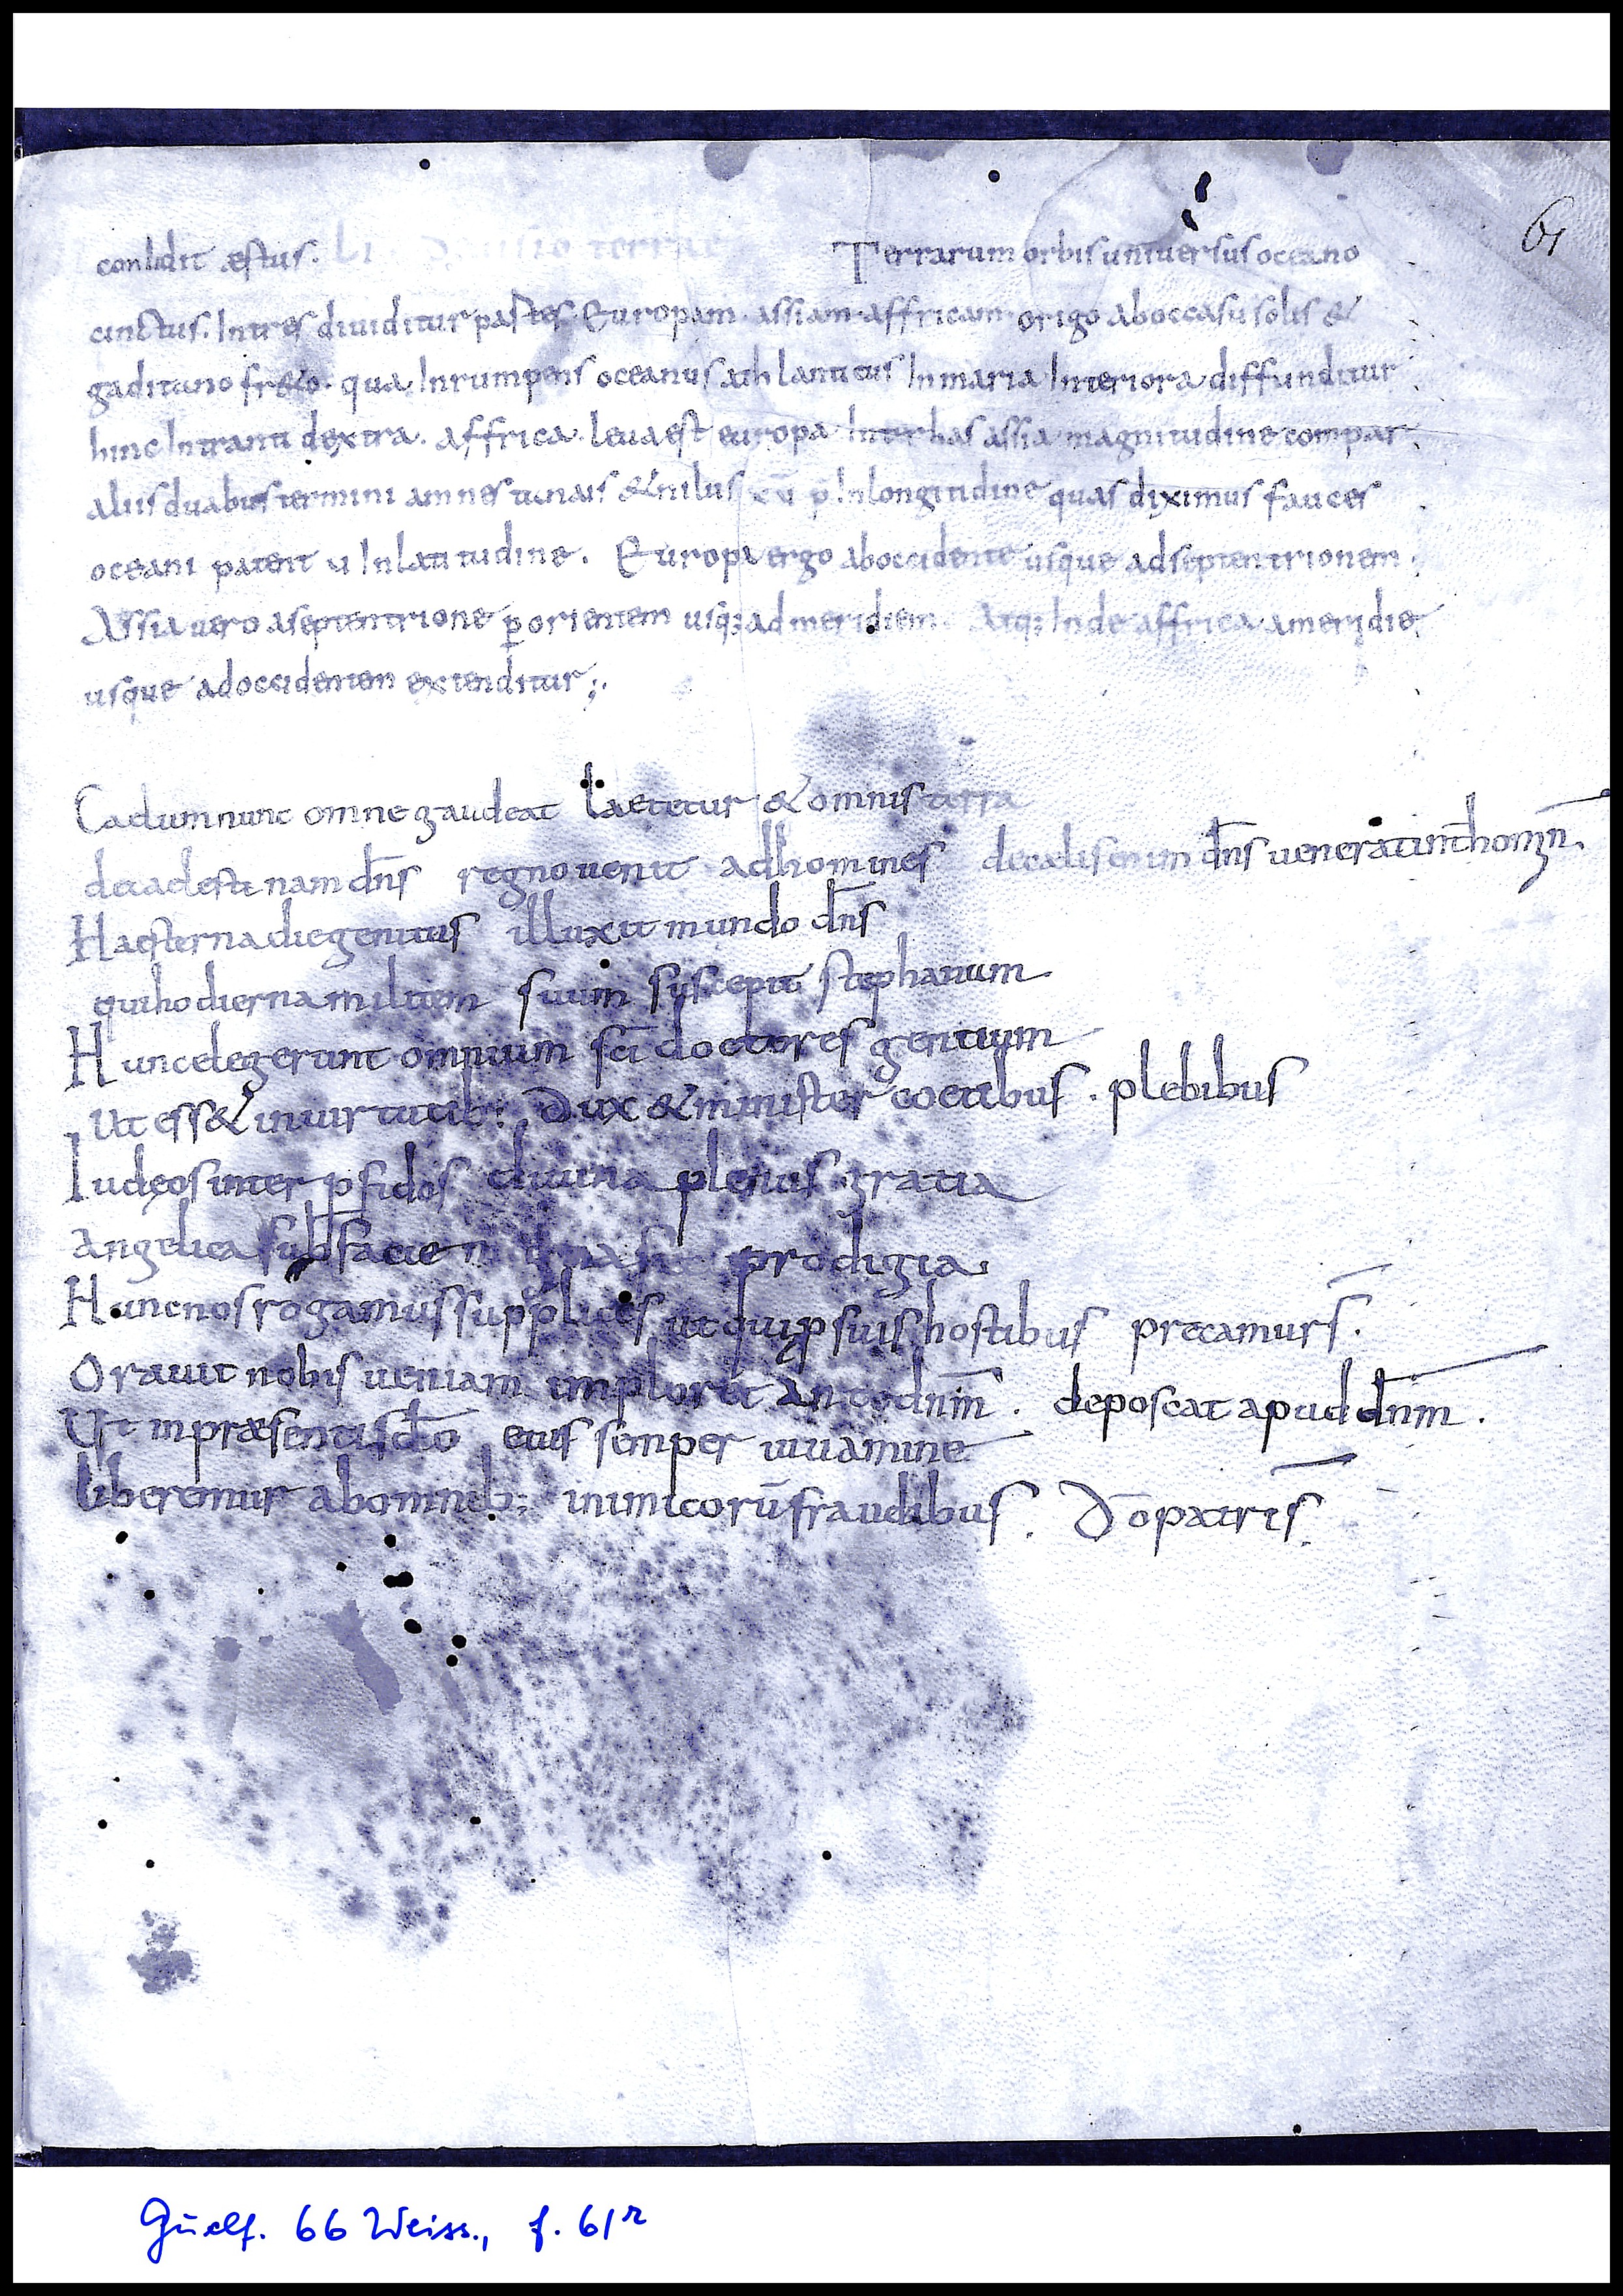 61
conlidit æstus. LI Diuisio terrae Terrarum orbis uniuersus oceano
cinctus. In tres diuiditur partes. Europam. assiam. affricam. origo aboccasu solis &
gaditano fr&o. qua Inrumpens oceanus athlanticus In maria Interiora diffunditur
hinc Intranti dextra. affrica. leua est europa. Inter has assia magnitudine compar
aliis duabus termini amnes tanais & nilus p̄ Inlongitudine quas diximus fauces
oceani patent u Inlatitudine. Europa ergo aboccidente usque adseptentrionem.
Assia uero aseptentrione ꝑ orientem usq; ad meridiem. Atq; Inde affrica ameridie
usque adoccidentem extenditur;.
Caelum nunc omne gaudeat Laetetur & omnis terra
nam dn̄s regno uenit adhomines decaelis enim dn̄s uenerat
Haesterna die genitus illuxit mundo dn̄s
qui hodierna militem suum suscepit stephanum
Hunc elegerunt omnium sc̄i doctores gentium
Ut ess& in uirtutib; Dux & minister coetibus. plebibus
Iudęos inter ꝑfidos diuina plenus gratia
Angelica sub facie prodigia
Hunc nos rogamus supplices ut qui ꝓ suis hostibus precamur s̄.
Orauit nobis ueniam imploret ante dn̄m. deposcat apud dn̄m.
Ut in præsentis eius semper iuuamine
liberemur ab omnib; inimicorū fraudibus. Dō patri s̄.
Guelf. 66 Weiss., f. 61r